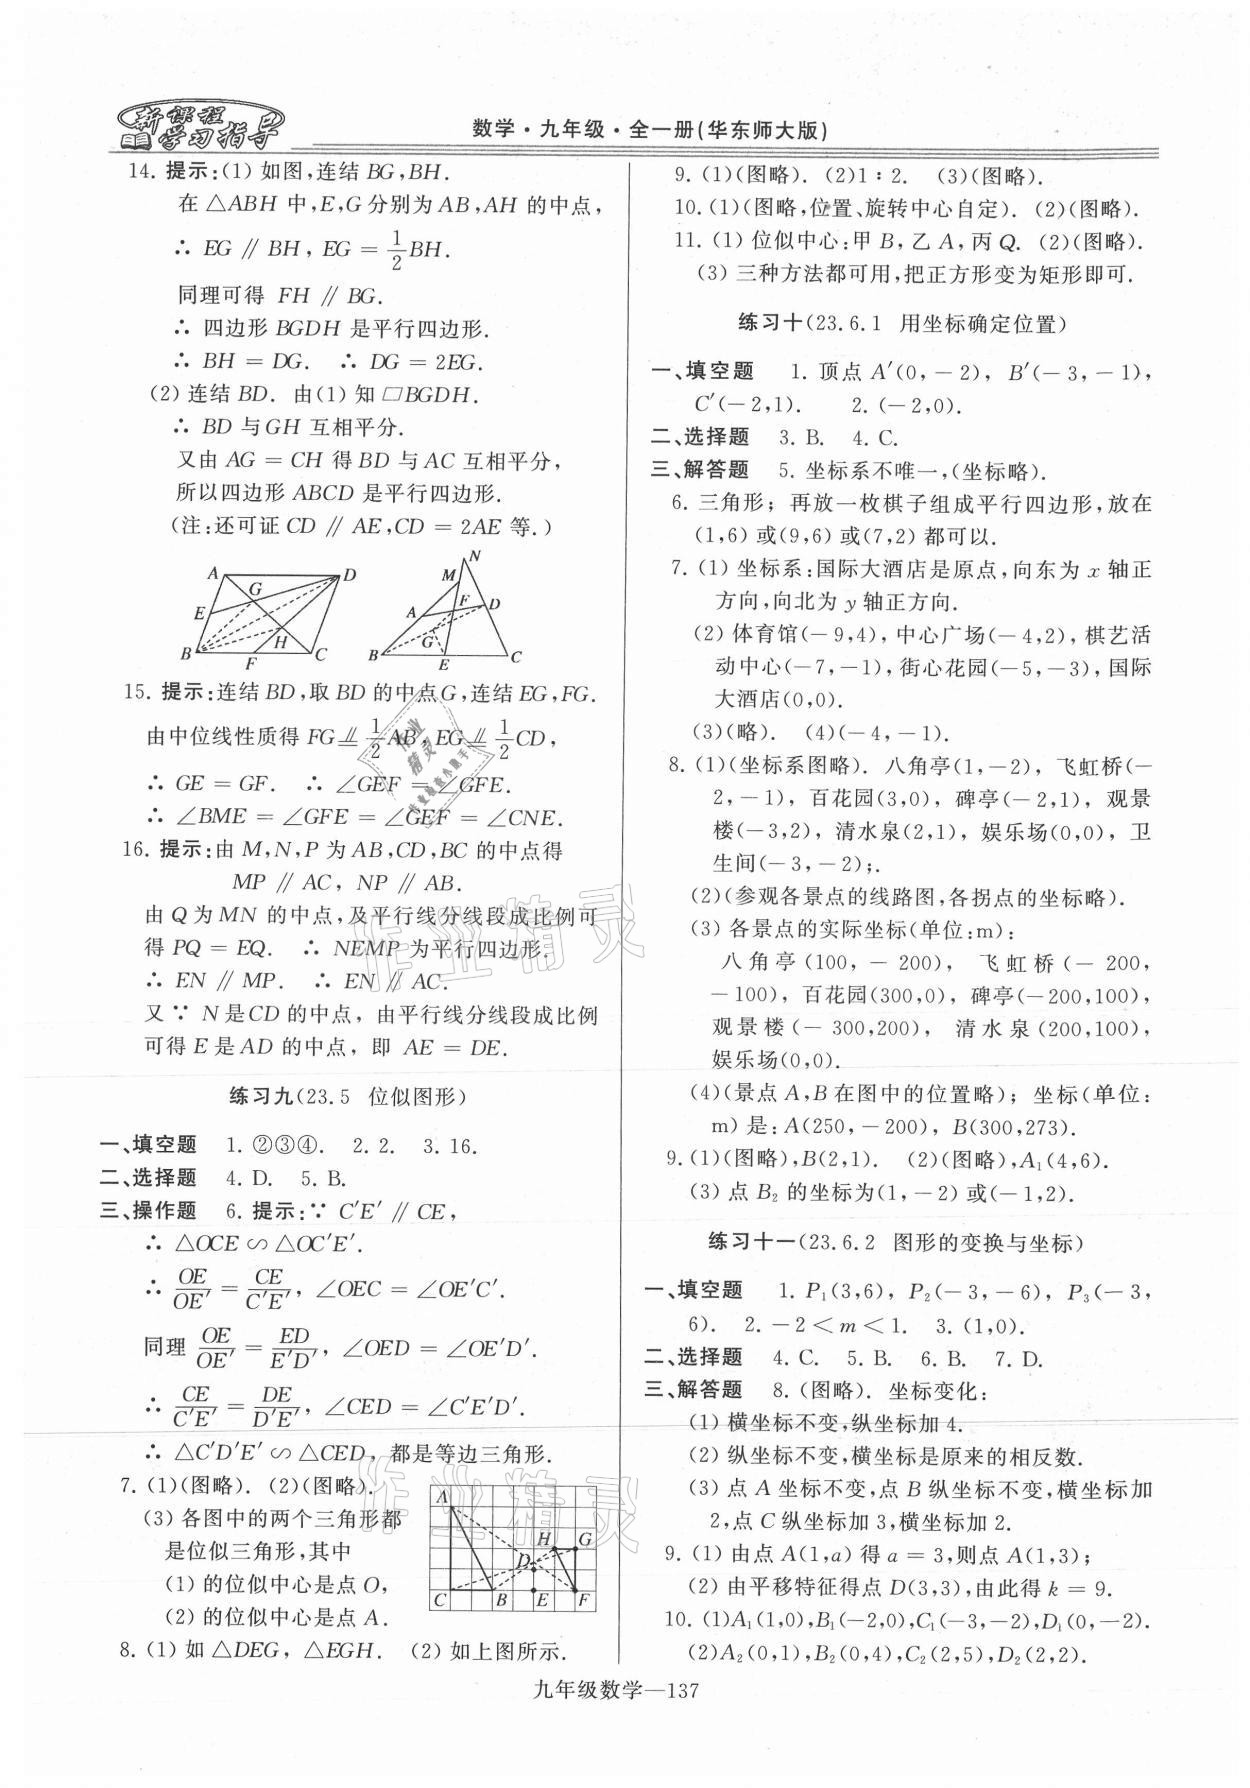 新课程
学习指导
数学·九年级·全一册(华东师大版)
14. 提示:(1) 如图,连结 BG,BH.
在 △ABH 中,E,G 分别为 AB,AH 的中点,
∴ EG ∥ BH, EG = 1/2 BH.
同理可得 FH ∥ BG.
∴ 四边形 BGDH 是平行四边形.
∴ BH = DG. ∴ DG = 2EG.
(2) 连结 BD. 由(1) 知 □BGDH.
∴ BD 与GH 互相平分.
又由 AG = CH 得 BD 与 AC 互相平分,
所以四边形 ABCD 是平行四边形.
(注:还可证 CD ∥ AE,CD = 2AE 等.)
A D G E H B F C
N M F A D G B E C
15. 提示:连结 BD,取 BD 的中点 G,连结 EG,FG.
由中位线性质得 FG ⫽ 1/2 AB, EG ⫽ 1/2 CD,
∴ GE = GF. ∴ ∠GEF = ∠GFE.
∴ ∠BME = ∠GFE = ∠GEF = ∠CNE.
16. 提示:由 M,N,P 为 AB,CD,BC 的中点得
MP ∥ AC, NP ∥ AB.
由 Q 为 MN 的中点,及平行线分线段成比例可
得 PQ = EQ. ∴ NEMP 为平行四边形.
∴ EN ∥ MP. ∴ EN ∥ AC.
又 ∵ N 是CD 的中点, 由平行线分线段成比例
可得 E 是 AD 的中点, 即 AE = DE.
练习九(23.5 位似图形)
一、填空题 1. ②③④. 2. 2. 3. 16.
二、选择题 4. D. 5. B.
三、操作题 6. 提示:∵ C′E′ ∥ CE,
∴ △OCE ∽ △OC′E′.
∴ OE/OE′ = CE/C′E′, ∠OEC = ∠OE′C′.
同理 OE/OE′ = ED/E′D′, ∠OED = ∠OE′D′.
∴ CE/C′E′ = DE/D′E′, ∠CED = ∠C′E′D′.
∴ △C′D′E′ ∽ △CED, 都是等边三角形.
7. (1)(图略). (2)(图略).
(3) 各图中的两个三角形都
是位似三角形,其中
(1) 的位似中心是点 O,
(2) 的位似中心是点 A.
A H G D C B E F
8. (1) 如 △DEG, △EGH. (2) 如上图所示.
9. (1)(图略). (2)1∶2. (3)(图略).
10. (1)(图略,位置、旋转中心自定). (2)(图略).
11. (1) 位似中心:甲 B,乙 A,丙 Q. (2)(图略).
(3) 三种方法都可用,把正方形变为矩形即可.
练习十(23.6.1 用坐标确定位置)
一、填空题 1. 顶点 A′(0,-2), B′(-3,-1),
C′(-2,1). 2. (-2,0).
二、选择题 3. B. 4. C.
三、解答题 5. 坐标系不唯一,(坐标略).
6. 三角形; 再放一枚棋子组成平行四边形,放在
(1,6) 或(9,6) 或(7,2) 都可以.
7. (1) 坐标系:国际大酒店是原点,向东为 x 轴正
方向,向北为 y 轴正方向.
(2) 体育馆(-9,4), 中心广场(-4,2), 棋艺活
动中心(-7,-1),街心花园(-5,-3),国际
大酒店(0,0).
(3)(略). (4)(-4,-1).
8. (1)(坐标系图略). 八角亭(1,-2), 飞虹桥(-
2,-1), 百花园(3,0), 碑亭(-2,1), 观景
楼(-3,2), 清水泉(2,1), 娱乐场(0,0), 卫
生间(-3,-2);.
(2)(参观各景点的线路图,各拐点的坐标略).
(3) 各景点的实际坐标(单位:m):
八角亭(100,-200), 飞虹桥(-200,
-100), 百花园(300,0), 碑亭(-200,100),
观景楼(-300,200), 清水泉(200,100),
娱乐场(0,0).
(4)(景点 A,B 在图中的位置略); 坐标(单位:
m) 是: A(250,-200), B(300,273).
9. (1)(图略),B(2,1). (2)(图略),A₁(4,6).
(3) 点 B₂ 的坐标为(1,-2) 或(-1,2).
练习十一(23.6.2 图形的变换与坐标)
一、填空题 1. P₁(3,6), P₂(-3,-6), P₃(-3,
6). 2. -2<m<1. 3. (1,0).
二、选择题 4. C. 5. B. 6. B. 7. D.
三、解答题 8. (图略). 坐标变化:
(1) 横坐标不变,纵坐标加 4.
(2) 纵坐标不变,横坐标是原来的相反数.
(3) 点 A 坐标不变,点 B 纵坐标不变,横坐标加
2,点 C 纵坐标加 3,横坐标加 2.
9. (1) 由点 A(1,a) 得 a = 3,则点 A(1,3);
(2) 由平移特征得点 D(3,3),由此得 k = 9.
10. (1)A₁(1,0),B₁(-2,0),C₁(-3,-2),D₁(0,-2).
(2)A₂(0,1),B₂(0,4),C₂(2,5),D₂(2,2).
九年级数学—137
作业精灵
作业精灵
作业精灵